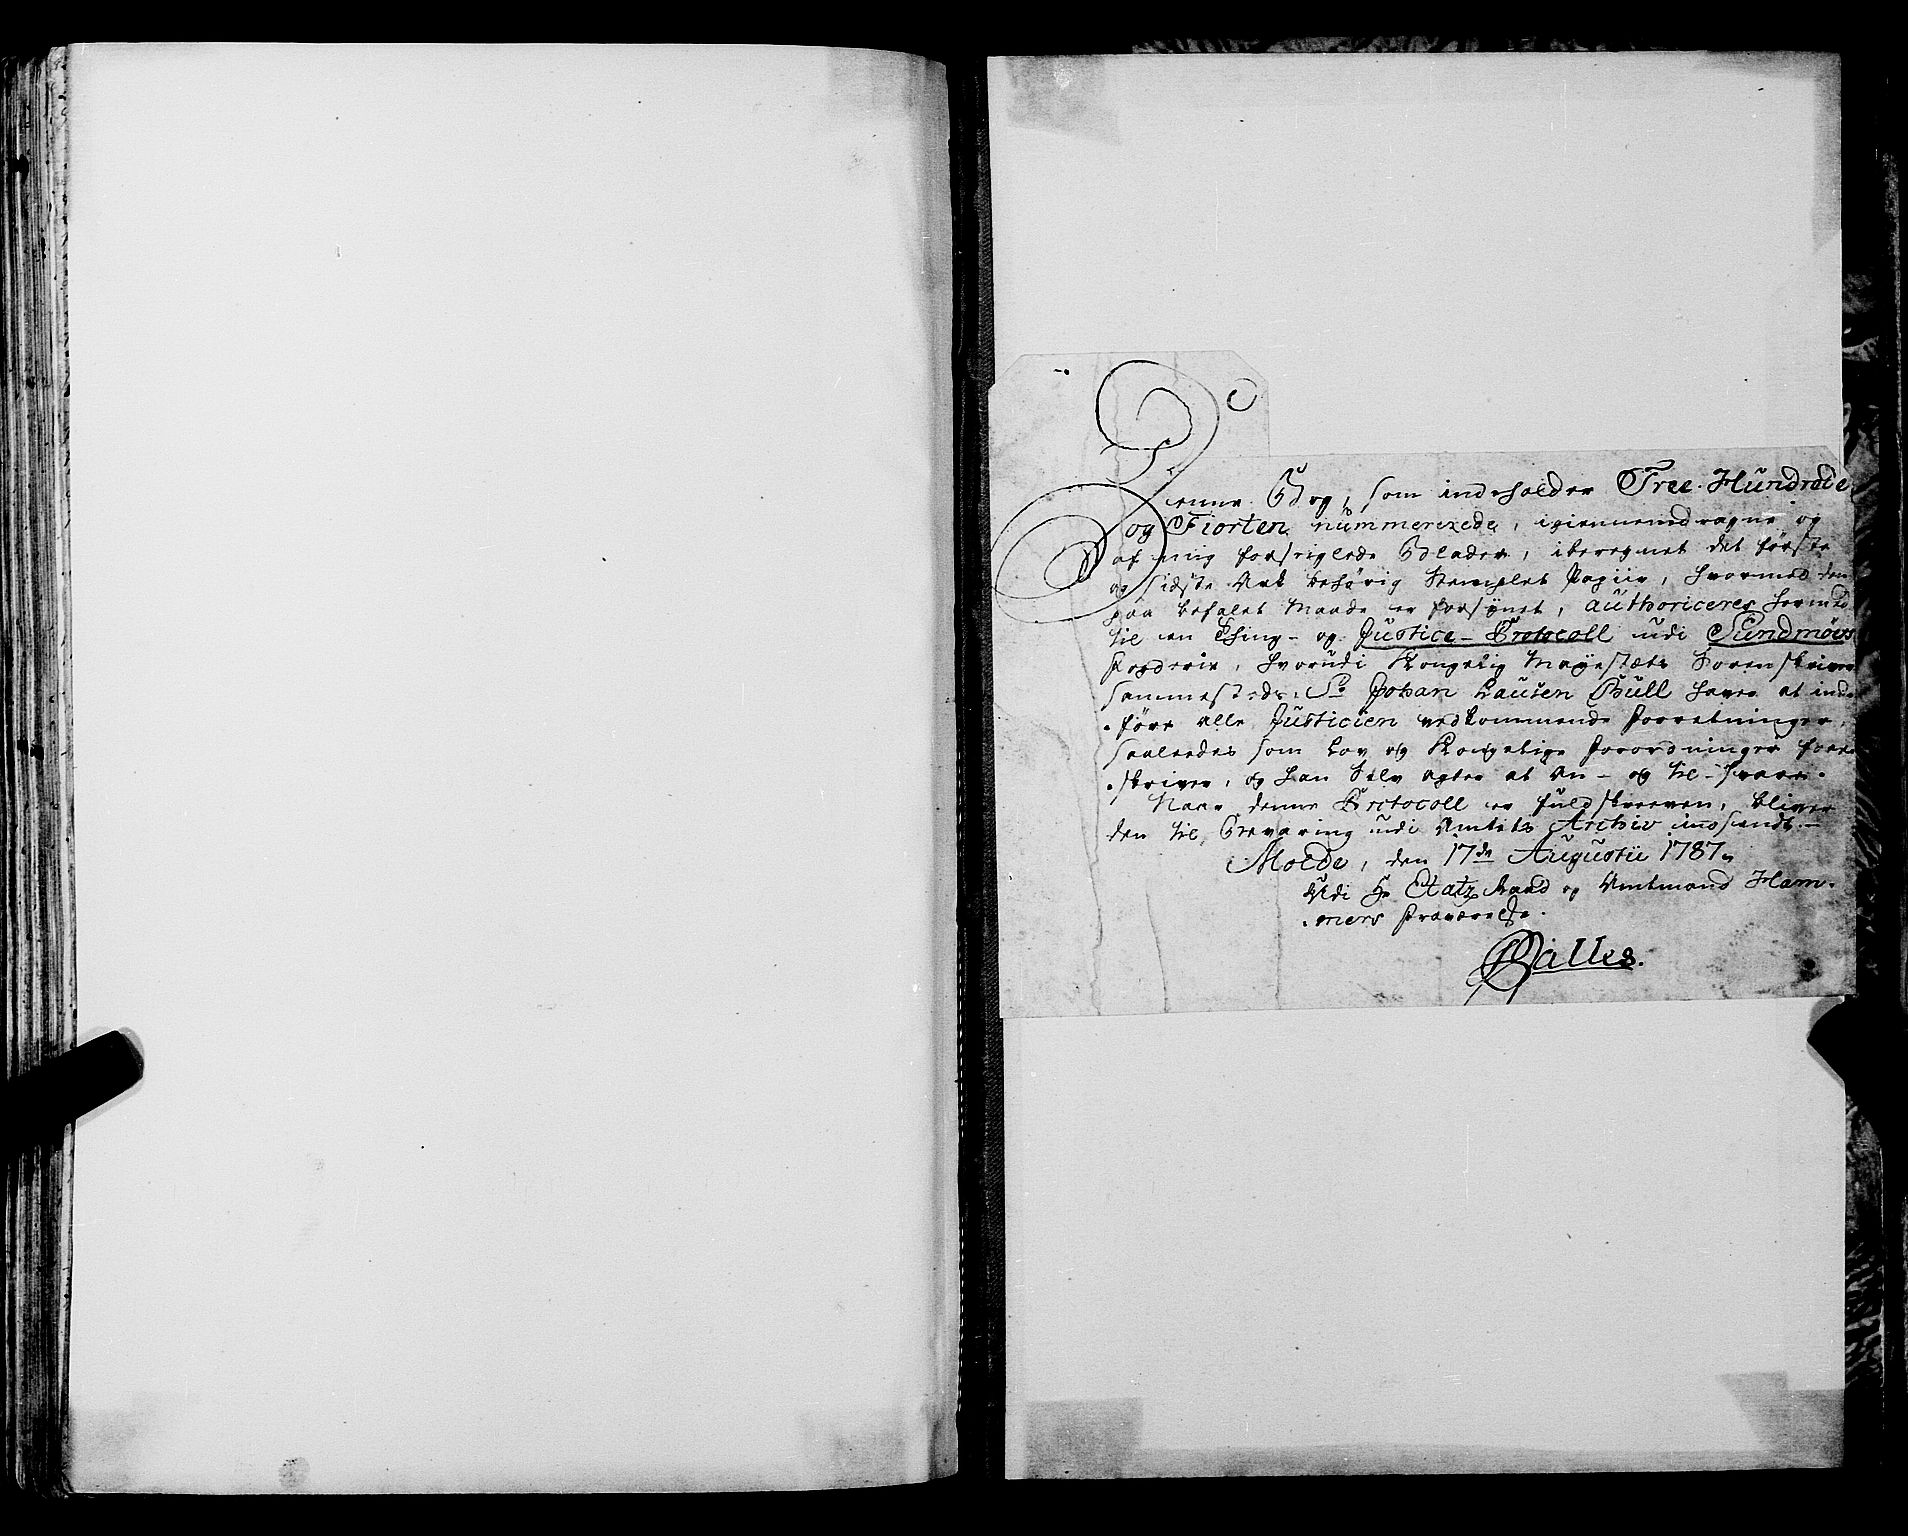 Denne Bog, som indeholder Tree Hundrede
og Fiorten nummererede, igiennemdragne og
af mig forseiglede Blader, iberegnet det første
og sidste Ark behørig Stemplet Papiir, hvormed den
paa befalet Maade er forsÿnet, authoriceres hermed
til en Thing- og Justice-Protocoll udi Sundmørs
Fogderie, hvorudi Kongelig Mayestæts Sorenskriver
sammesteds, Sr Johan Lausen Bull haver at ind-
føre alle Justicien vedkommende Forretninger,
saaledes som Lov og Kongelige Forordninger fore-
skriver, og han selv agter at An- og til-svare.
Naar denne Protocoll er fuldskreeven, bliver
den til Bevaring udi Amtets Archiv indsendt.-
Molde, den 17de Augustii 1787.
Udi Hr Etatz Raad og Amtmand Ham-
mers Fraværelse.
Balles.